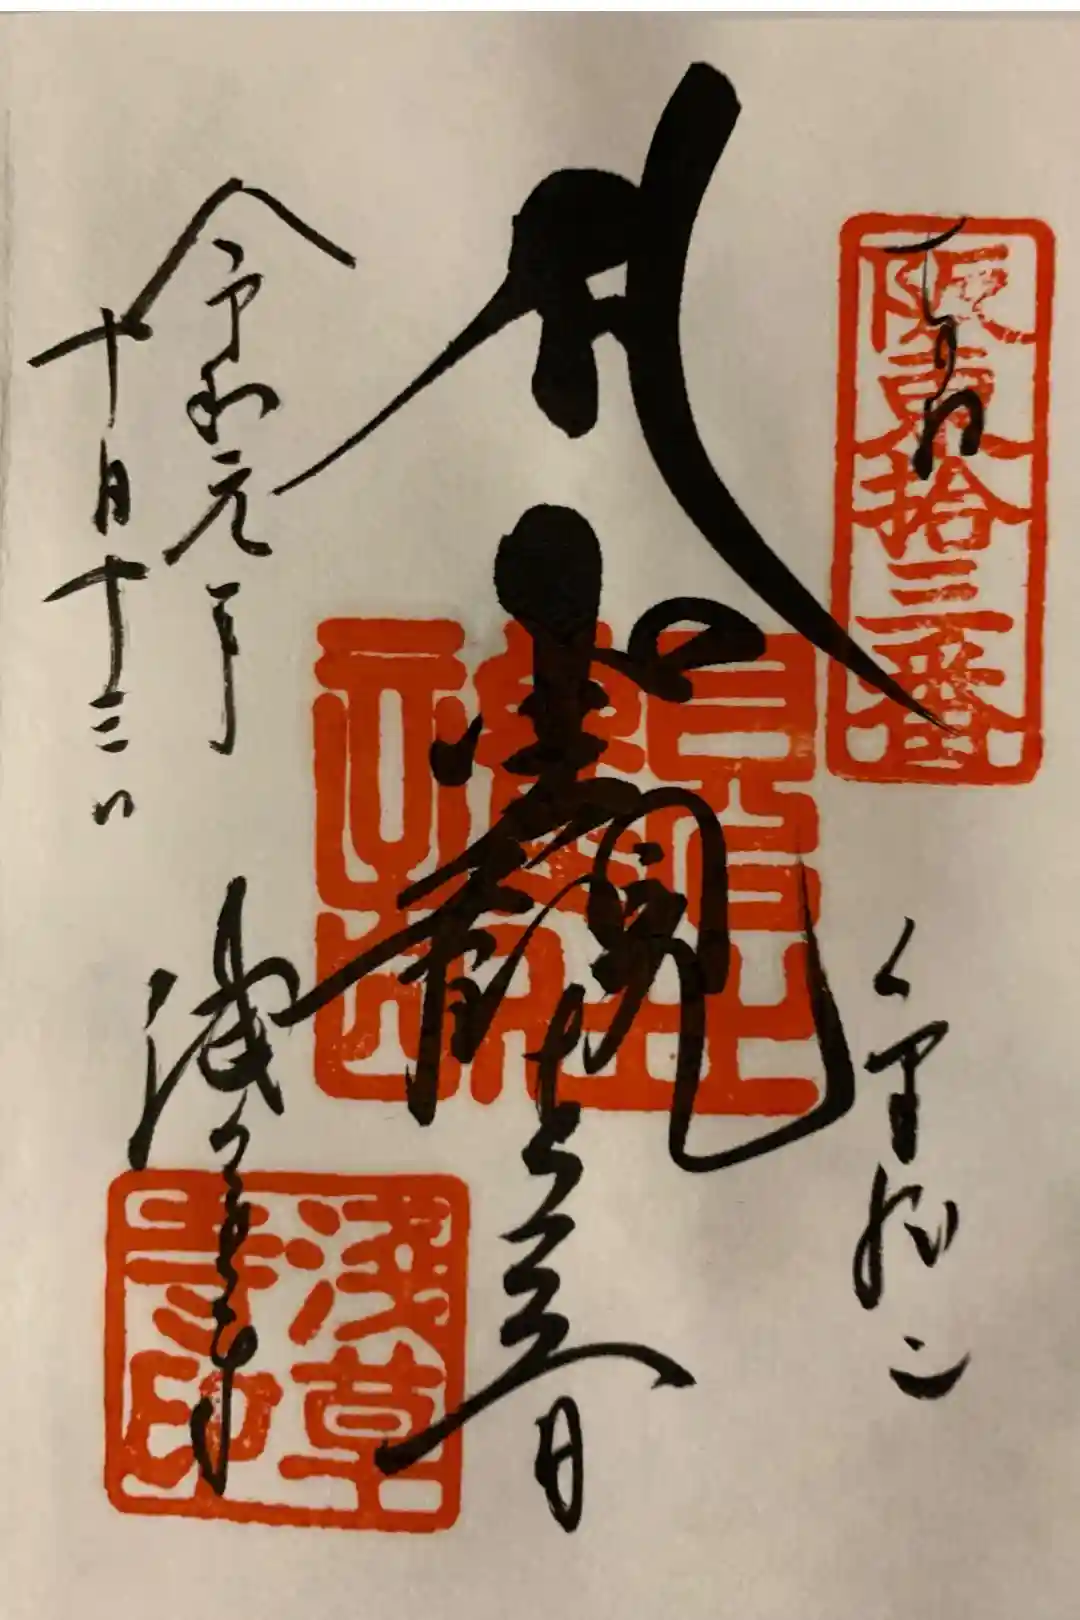 阪東拾三番
奉拝
金龍山
聖観世音
令和元年
十月十三日
浅草寺
浅草寺印